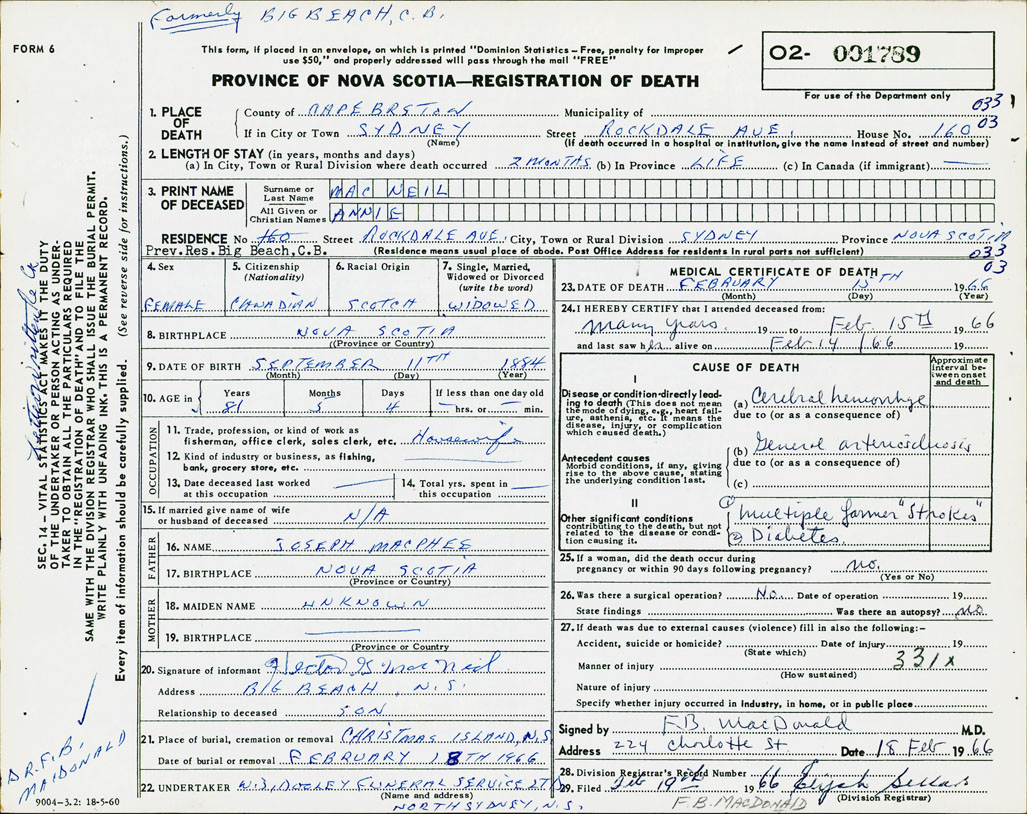 Formerly BIG BEACH, C.B.
FORM 6
This form, if placed in an envelope, on which is printed "Dominion Statistics – Free, penalty for improper
use $50," and properly addressed will pass through the mail "FREE"
PROVINCE OF NOVA SCOTIA—REGISTRATION OF DEATH
02- 001789
For use of the Department only
033
03
1. PLACE OF DEATH
County of CAPE BRETON Municipality of
If in City or Town SYDNEY Street ROCKDALE AVE. House No. 160
(Name) (If death occurred in a hospital or institution, give the name instead of street and number)
2. LENGTH OF STAY (in years, months and days)
(a) In City, Town or Rural Division where death occurred 2 MONTHS (b) In Province LIFE (c) In Canada (if immigrant) —
3. PRINT NAME OF DECEASED
Surname or Last Name MAC NEIL
All Given or Christian Names ANNIE
RESIDENCE No 160 Street ROCKDALE AVE. City, Town or Rural Division SYDNEY Province NOVA SCOTIA
Prev.Res.Big Beach,C.B. (Residence means usual place of abode. Post Office Address for residents in rural parts not sufficient)
033
03
4. Sex FEMALE
5. Citizenship (Nationality) CANADIAN
6. Racial Origin SCOTCH
7. Single, Married, Widowed or Divorced (write the word) WIDOWED
8. BIRTHPLACE NOVA SCOTIA
(Province or Country)
9. DATE OF BIRTH SEPTEMBER 11TH 1884
(Month) (Day) (Year)
10. AGE in Years 81 Months 5 Days 4 If less than one day old — hrs. or — min.
OCCUPATION
11. Trade, profession, or kind of work as
fisherman, office clerk, sales clerk, etc. Housewife
12. Kind of industry or business, as fishing,
bank, grocery store, etc.
13. Date deceased last worked
at this occupation —
14. Total yrs. spent in
this occupation —
15. If married give name of wife
or husband of deceased N/A
FATHER
16. NAME JOSEPH MACPHEE
17. BIRTHPLACE NOVA SCOTIA
(Province or Country)
MOTHER
18. MAIDEN NAME UNKNOWN
19. BIRTHPLACE —
(Province or Country)
20. Signature of informant Hector G MacNeil
Address BIG BEACH, N.S.
Relationship to deceased SON
21. Place of burial, cremation or removal CHRISTMAS ISLAND, N.S.
Date of burial or removal FEBRUARY 18TH 1966
22. UNDERTAKER W.J. DOOLEY FUNERAL SERVICE LTD
(Name and address)
NORTH SYDNEY, N.S.
MEDICAL CERTIFICATE OF DEATH
23. DATE OF DEATH FEBRUARY 15TH 1966
(Month) (Day) (Year)
24. I HEREBY CERTIFY that I attended deceased from:
Many years 19 to Feb. 15th 1966
and last saw her alive on Feb 14 /66 19
CAUSE OF DEATH
Approximate interval between onset and death
I
Disease or condition directly leading to death (This does not mean the mode of dying, e.g., heart failure, asthenia, etc. It means the disease, injury, or complication which caused death.)
(a) Cerebral hemorrhage
due to (or as a consequence of)
Antecedent causes
Morbid conditions, if any, giving rise to the above cause, stating the underlying condition last.
(b) General arteriosclerosis
due to (or as a consequence of)
(c)
II
Other significant conditions
contributing to the death, but not related to the disease or condition causing it.
① Multiple former "Strokes"
② Diabetes.
25. If a woman, did the death occur during
pregnancy or within 90 days following pregnancy? no.
(Yes or No)
26. Was there a surgical operation? No. Date of operation 19
State findings Was there an autopsy? no
27. If death was due to external causes (violence) fill in also the following:–
Accident, suicide or homicide? Date of injury 19
(State which)
Manner of injury 331x
(How sustained)
Nature of injury
Specify whether injury occurred in industry, in home, or in public place
Signed by F.B. MacDonald M.D.
Address 224 Charlotte St. Date 18 Feb 1966
28. Division Registrar's Record Number
29. Filed Feb 19th 1966
(Division Registrar)
F.B. MACDONALD
SEC. 14 – VITAL STATISTICS ACT MAKES IT THE DUTY
OF THE UNDERTAKER OR PERSON ACTING AS UNDERTAKER
TO OBTAIN ALL THE PARTICULARS REQUIRED
IN THE "REGISTRATION OF DEATH" AND TO FILE THE
SAME WITH THE DIVISION REGISTRAR WHO SHALL ISSUE THE BURIAL PERMIT.
WRITE PLAINLY WITH UNFADING INK. THIS IS A PERMANENT RECORD.
Every item of information should be carefully supplied. (See reverse side for instructions.)
DR. F.B. MACDONALD
9004-3.2: 18-5-60